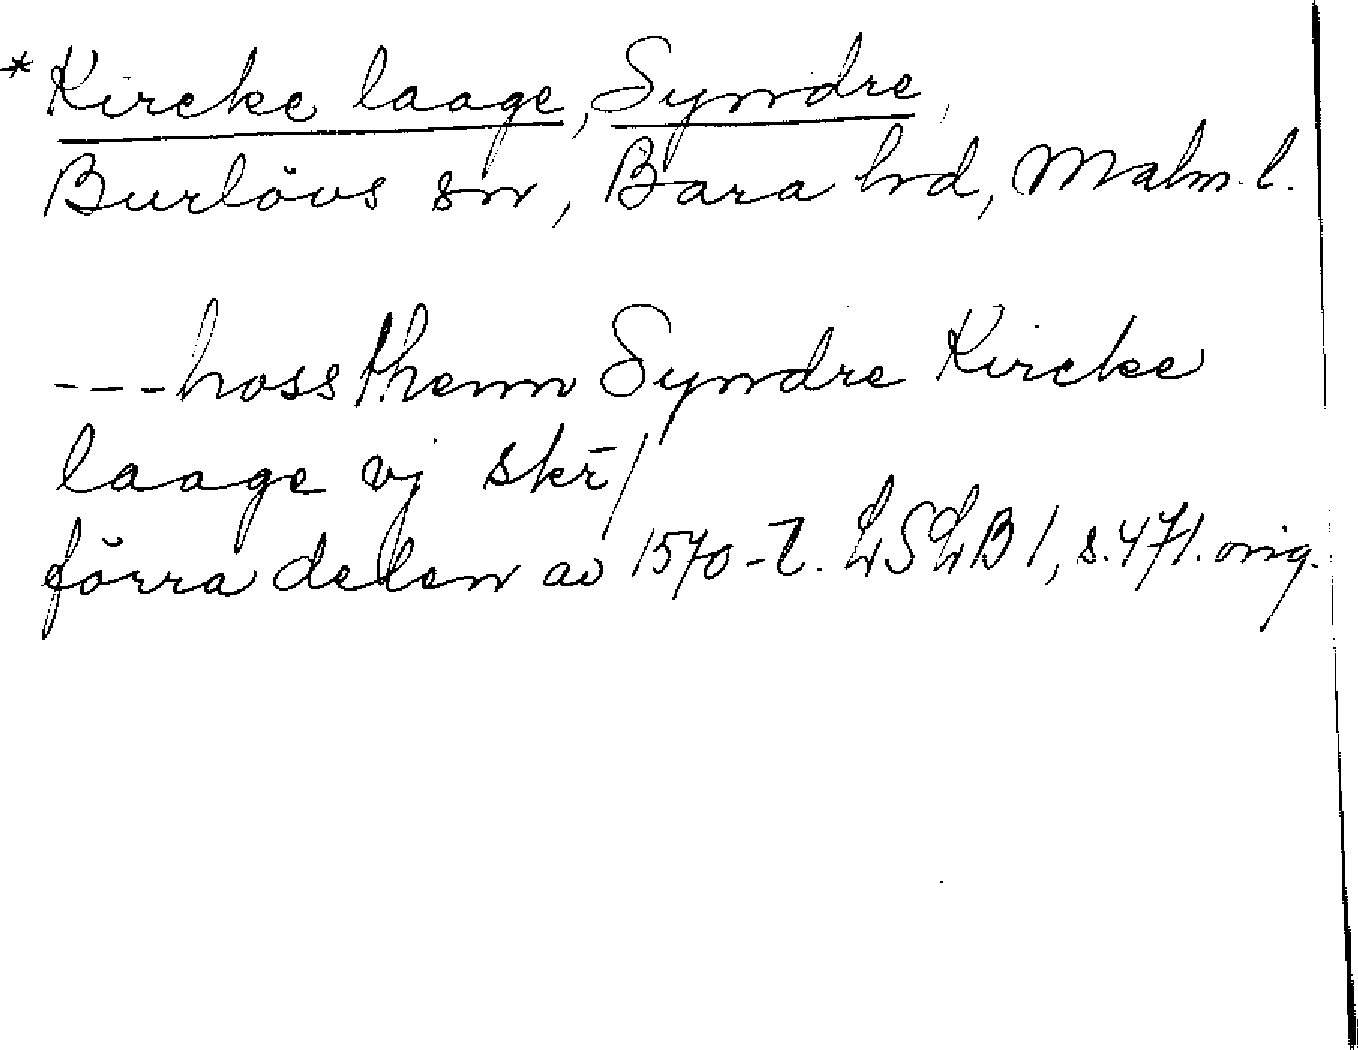 * Kircke laage, Syndre
Burlövs sn, Bara hd, Malm. l.
---hoss thenn Syndre Kircke
laage vj skr̄/
förra delen av 1570-t. LSLB 1, s. 471. orig.